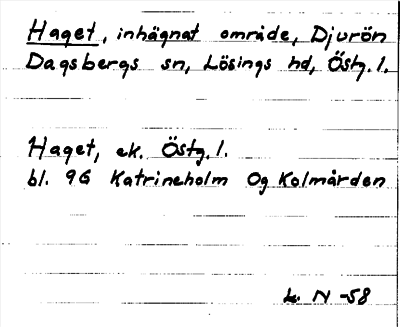 Haget, inhägnat område, Djurön
Dagsbergs sn, Lösings hd, Östg. l.
Haget, ek. Östg. l.
bl. 9G Katrineholm Og Kolmården
L. N -58